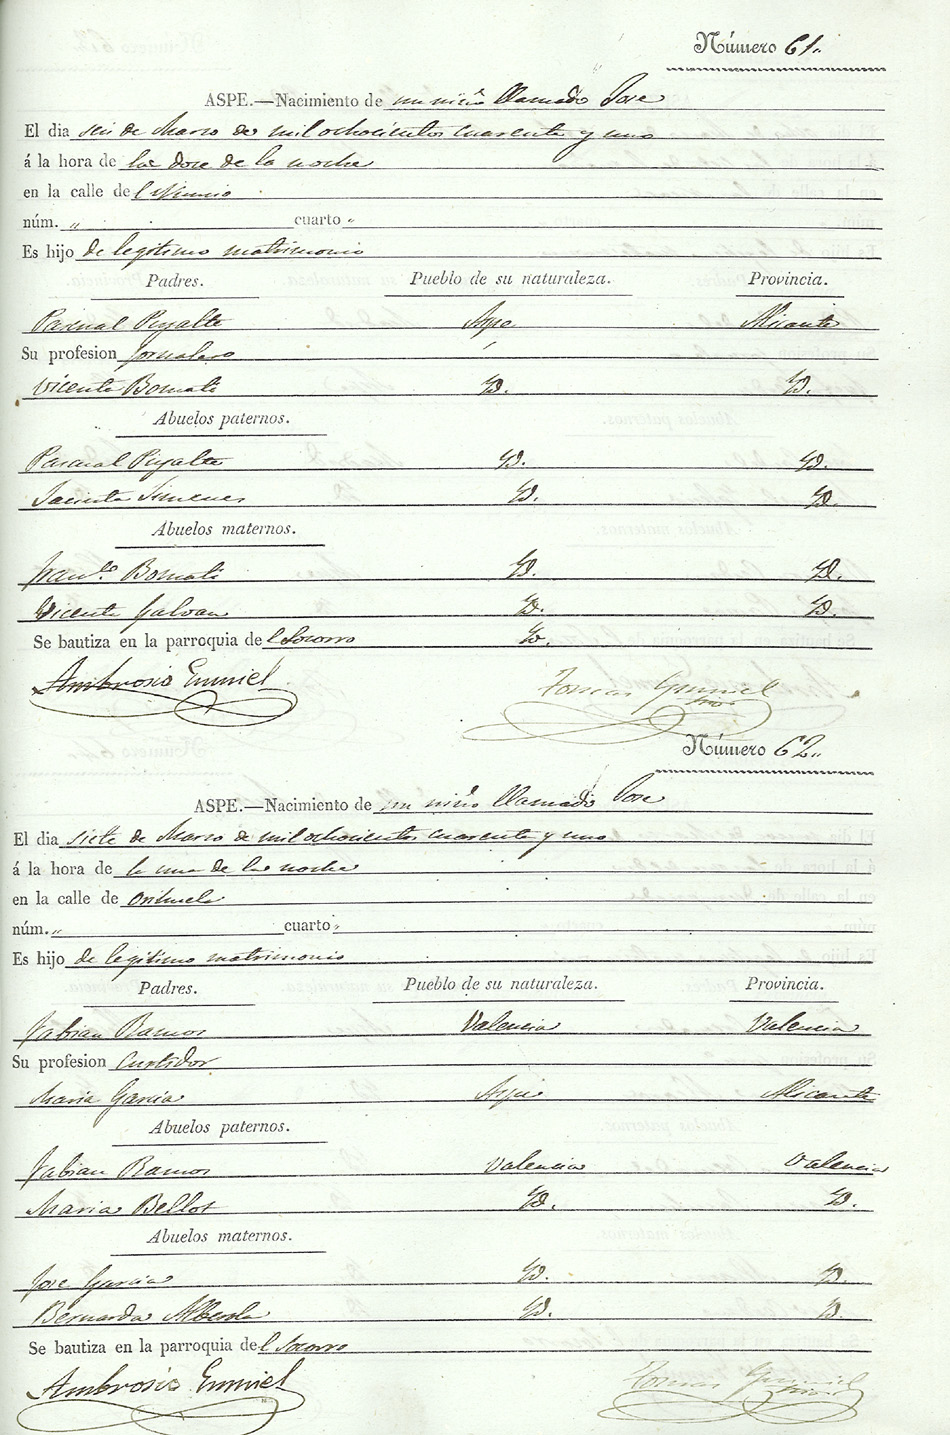 Número 61.
ASPE.—Nacimiento de un niño llamado Jose
El dia seis de Marzo de mil ochocientos cuarenta y uno
á la hora de las doce de la noche
en la calle de
núm. „ cuarto „
Es hijo de legitimo matrimonio
Padres. Pueblo de su naturaleza. Provincia.
Pascual Pujalte Aspe Alicante
Su profesion Jornalero
Vicenta Bomati Yd. Yd.
Abuelos paternos.
Pascual Pujalte Yd. Yd.
Jacinta Simenes Yd. Yd.
Abuelos maternos.
Franco. Bomati Yd. Yd.
Vicenta Galvan Yd. Yd.
Se bautiza en la parroquia del Socorro Yd.
Ambrosio
Tomas
Número 62.
ASPE.—Nacimiento de un niño llamado Jose
El dia siete de Marzo de mil ochocientos cuarenta y uno
á la hora de la una de la noche
en la calle de Orihuela
núm. „ cuarto „
Es hijo de legitimo matrimonio
Padres. Pueblo de su naturaleza. Provincia.
Fabian Ramos Valencia Valencia
Su profesion Curtidor
Maria Garcia Aspe Alicante
Abuelos paternos.
Fabian Ramos Valencia Valencia
Maria Bellot Yd. Yd.
Abuelos maternos.
Jose Garcia Yd. Yd.
Bernarda Alberola Yd. Yd.
Se bautiza en la parroquia del Socorro
Ambrosio
Tomas